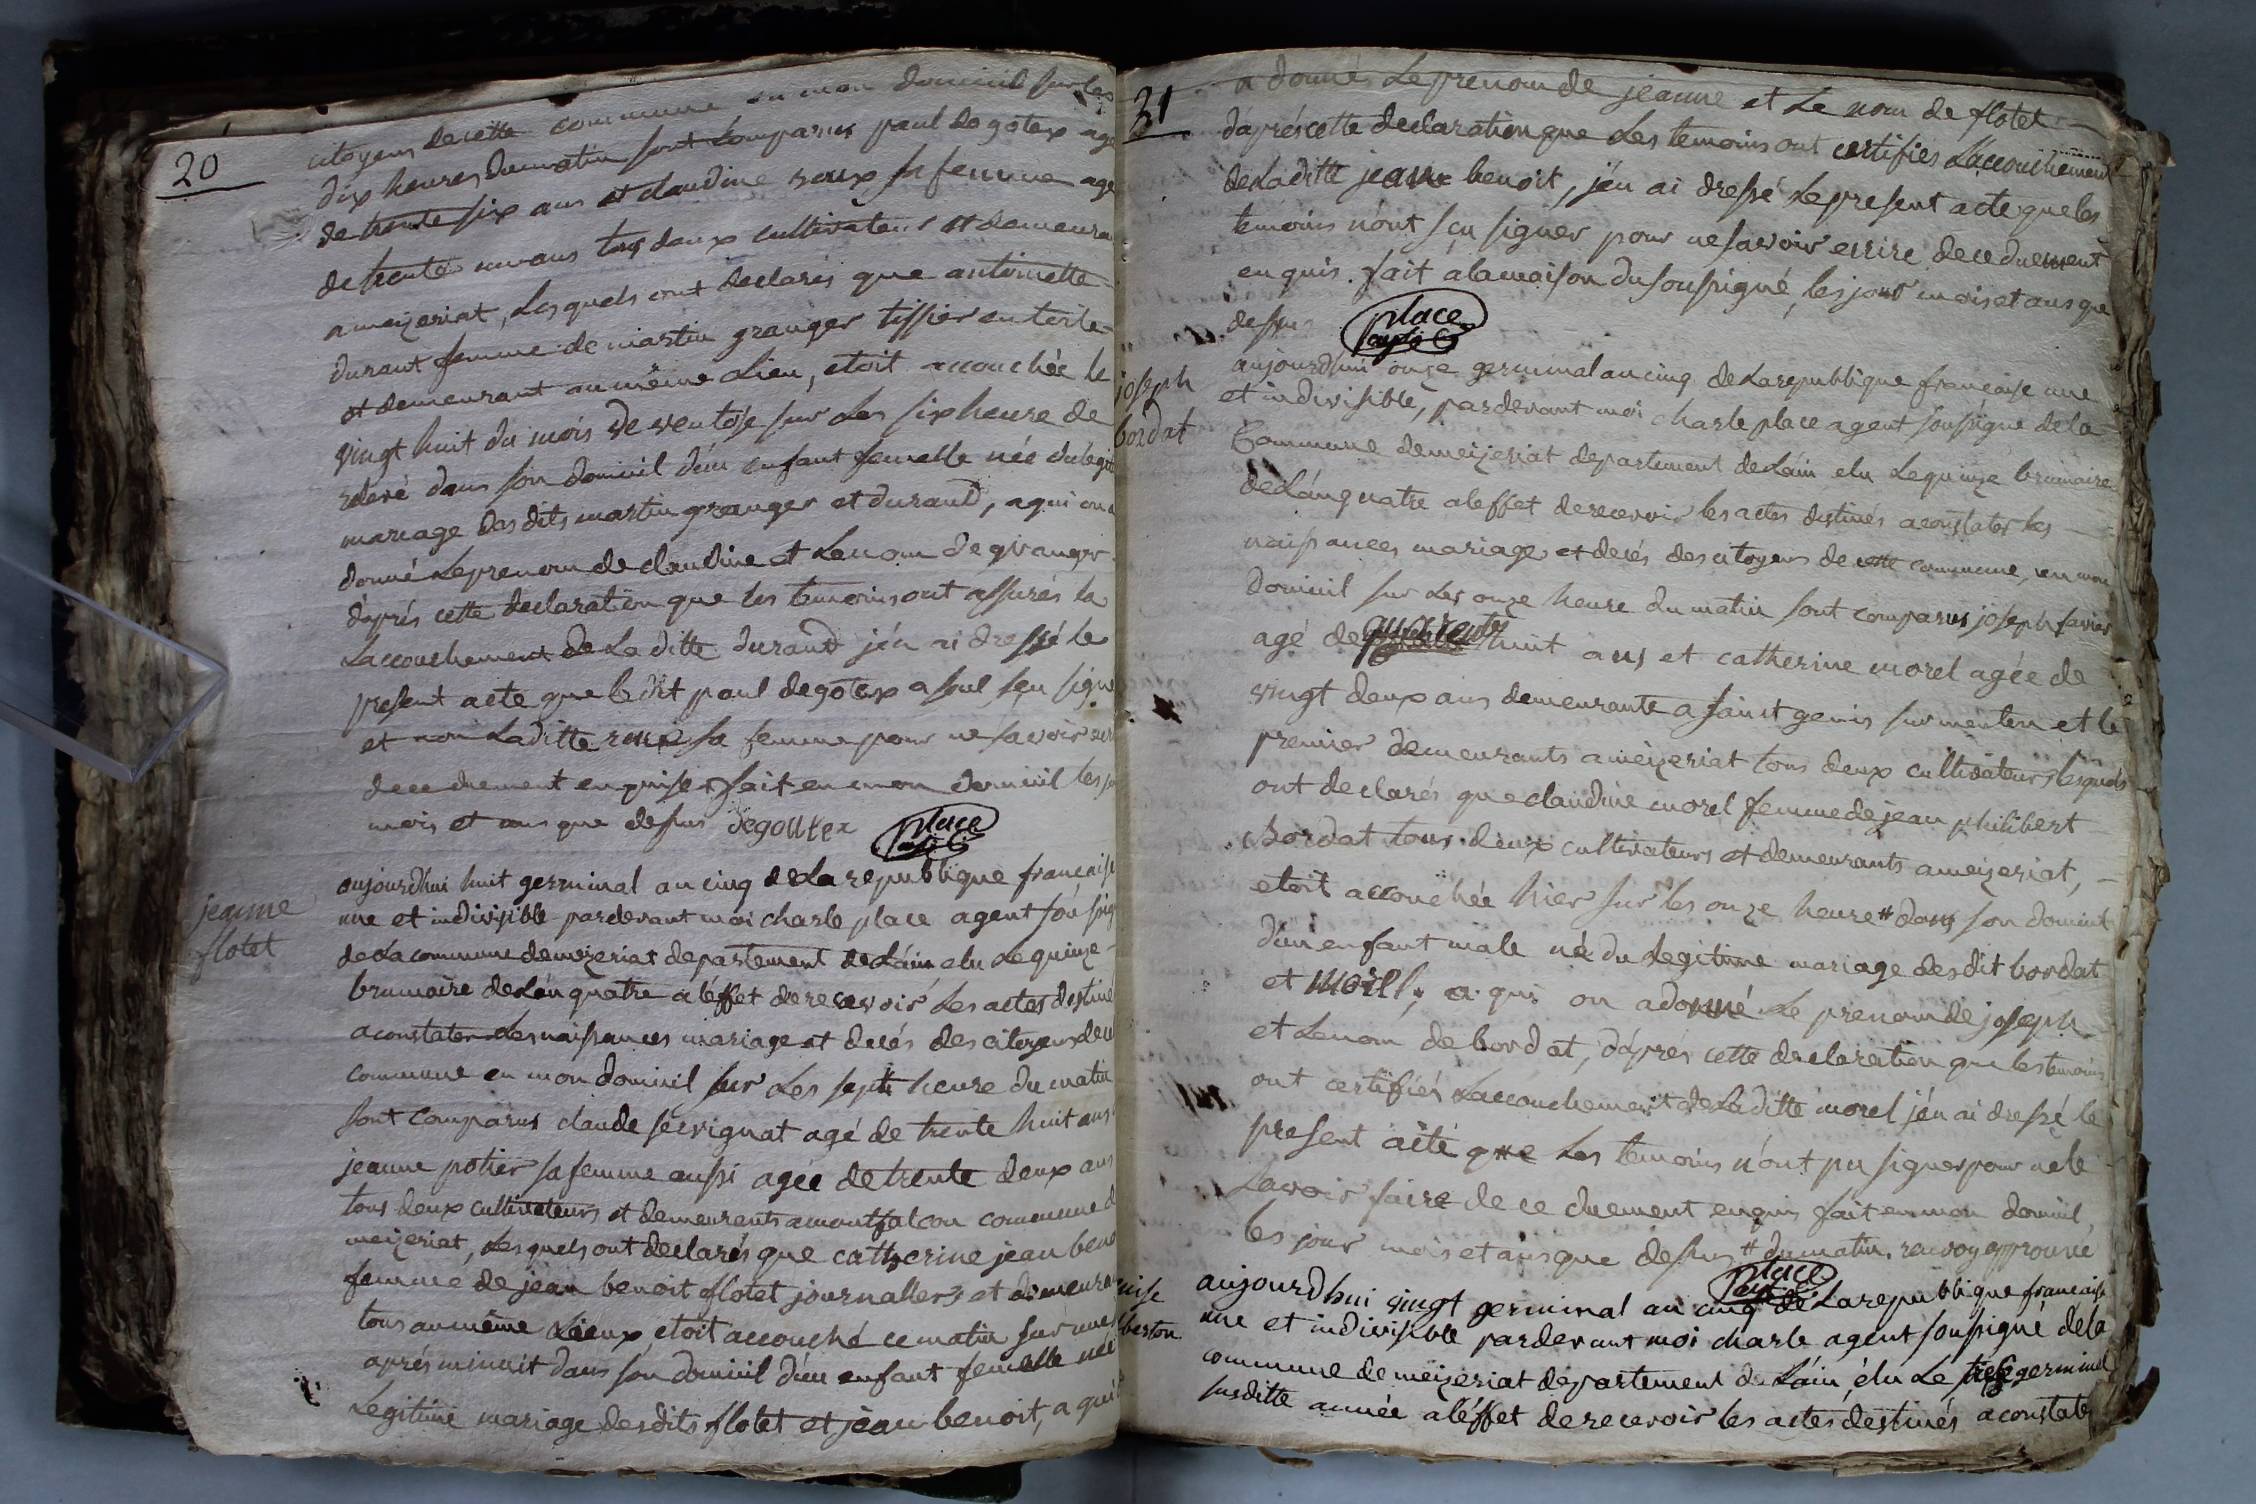 20
citoyens de cette commune en mon domicil sur les
dix heures dumatin sont comparus paul degotex age
de trente six ans et claudine roux sa femme age
de trente un ans tous deux cultivateurs et demeurant
a meizeriat, lesquels ont declarés que antoinette
durant femme de martin granger tissier en toile
et demeurant au même Lieu, etoit accouchée le
vingt huit du mois de ventose sur Les six heure de
relevé dans son domicil d'un enfant femelle née du legit
mariage desdits martin granger et durand, a qui on a
donné Le prenom de claudine et Le nom de granger
d'aprés cette declaration que les temoins ont assurés la
Laccouchement de Laditte durand j'en ai dressé le
present acte que ledit paul degotex a seul sçu signe
et non Laditte roux sa femme pour ne savoir ecri
de ce duement enquise, fait en mon domicil les jo
mois et ans que dessus degoutex place
jeanne
flotet
aujourd'hui huit germinal an cinq de La republique française
une et indivisible pardevant moi charle place agent sousig
de La commune demeizeriat departement de L'ain elu Le quinze
brumaire de L'an quatre a l'effet de recevoir Les actes destiné
a constater Les naissances mariage et decés des citoyens de ce
commune en mon domicil sur Les sept heure du matin
sont comparus claude servignat agé de trente huit ans
jeanne potier sa femme aussi agée de trente deux ans
tous deux cultivateurs et demeurents a montfalcon commune d
meizeriat, Lesquels ont declarés que catherine jean beno
femme de jean benoit flotet journallers et demeura
tous au même Lieux etoit accouché ce matin sur une
aprés minuit dans son domicil d'un enfant femelle née
Legitime mariage desdits flotet et jean benoit, a qui
31
a donné Le prenom de jeanne et Le nom de flotet
d'aprés cette declaration que Les temoins ont certifiés L'accouchement
de Laditte jeanne benoit, j'en ai dressé Le present acte que les
temoins n'ont sçu signer pour ne savoir ecrire de ce duement
enquis. fait a la maison du soussigné, les jour mois et ans que
dessus place
joseph
bordat
aujourd'hui onze germinal an cinq de La republique française une
et indivisible, pardevant moi charle place agent soussigné de la
Commune demeizeriat departement de L'ain elu Le quinze brumaire
de L'an quatre a l'effet de recevoir les actes destinés a constater les
naissances mariage et decés des citoyens de cette commune, en mon
domicil sur Les onze heure du matin sont comparus joseph favier
agé de huit ans et catherine morel agée de
vingt deux ans demeurante a saint genis sur menton et le
premier demeurants a meizeriat tous deux cultivateurs lesquels
ont declarés que claudine morel femme de jean philibert
bordat tous deux cultivateurs et demeurants a meizeriat,
etoit accouchée hier sur les onze heure # dans son domicil
d'un enfant male né du legitime mariage desdit bordat
et morel, a qui on a donné Le prenom de joseph
et Le nom de bordat, d'aprés cette declaration que les temoins
ont certifiés Laccouchement de Laditte morel j'en ai dressé le
present acte que Les temoins n'ont pu signer pour ne le
savoir faire de ce duement enquis fait en mon domicil,
les jour mois et ans que dessus # du matin renvoy approuvé
place
berton
aujourd'hui vingt germinal an cinq de La republique française
une et indivisible pardevant moi charle agent soussigné de la
commune de meizeriat departement de L'ain, élu Le treize germinal
susditte année a l'éffet de recevoir les actes destinés a constater